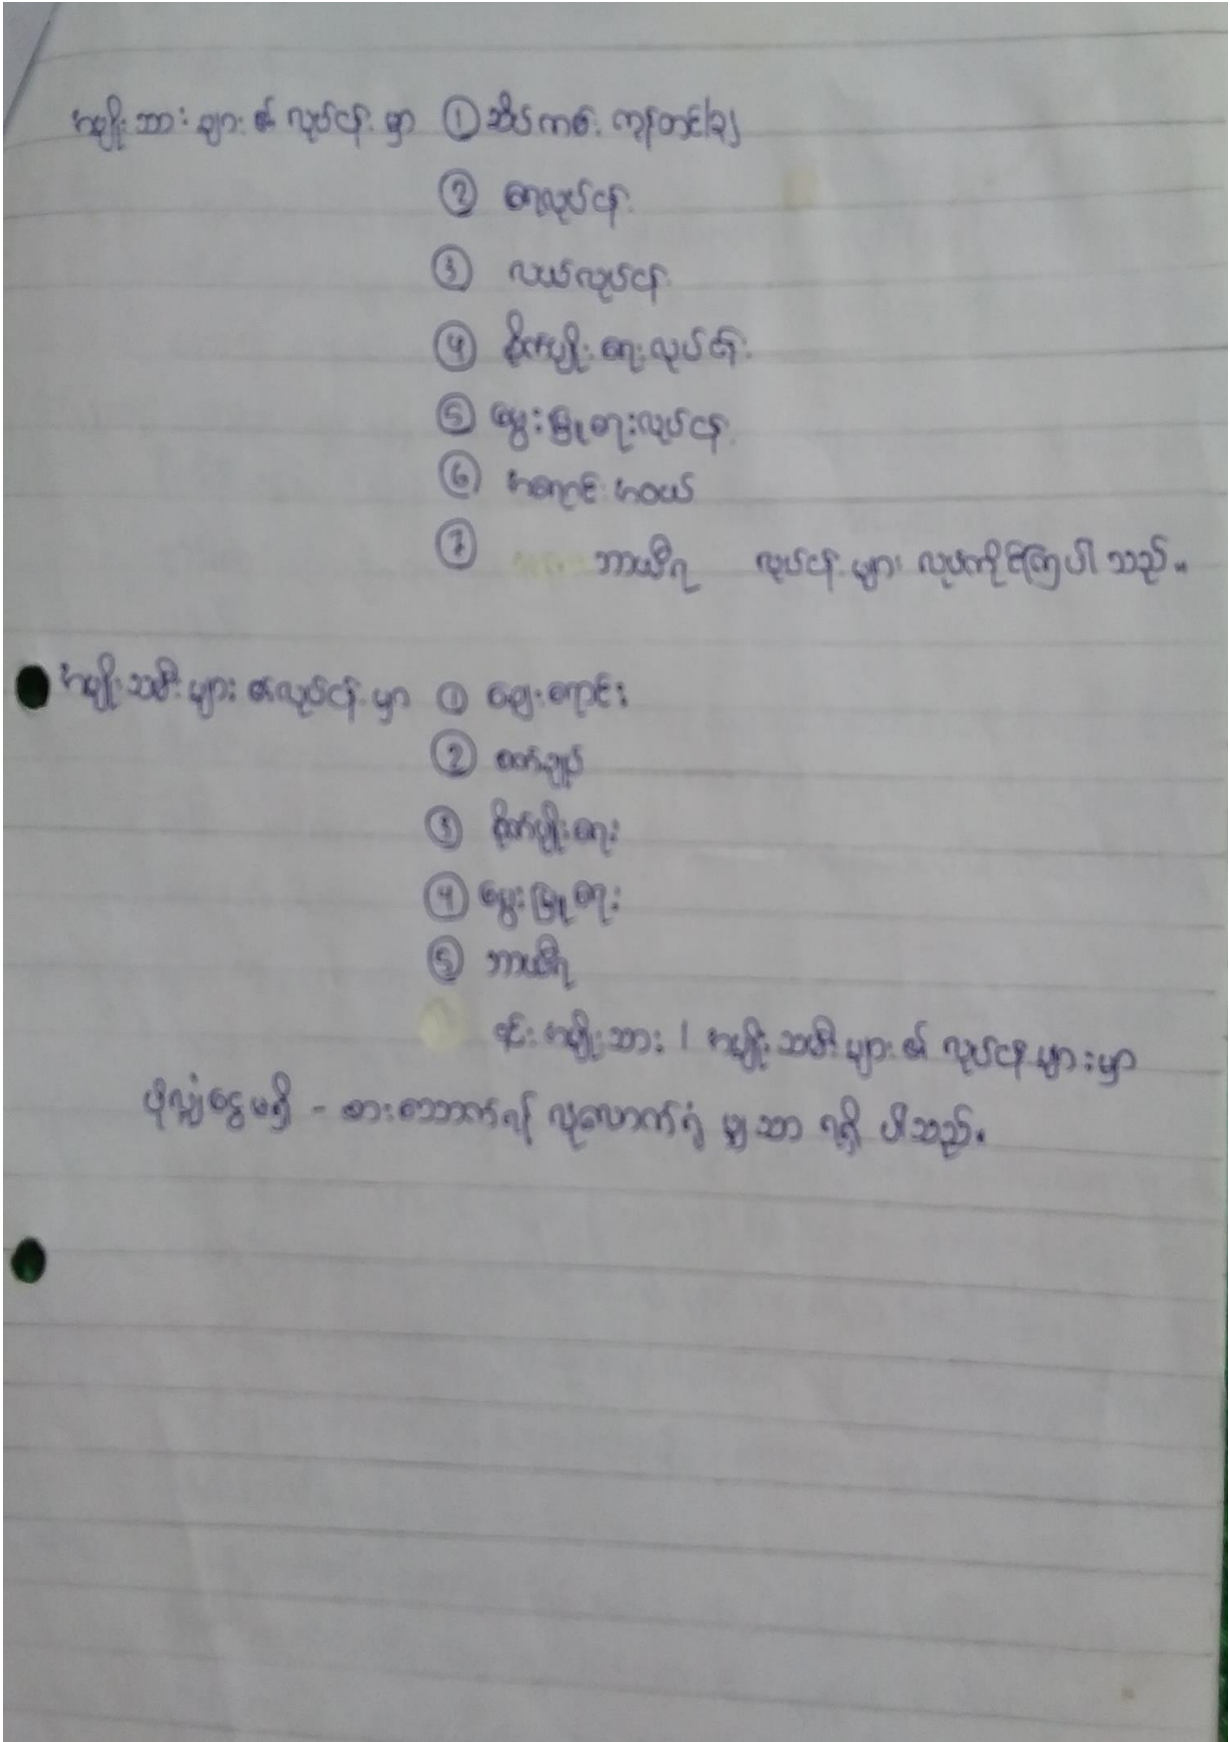 အမျိုးသားများ၏ လုပ်ငန်းမှာ ① ဆိပ်ကမ်း ကုန်တင်/ချ
② ရေလုပ်ငန်း
③ လယ်လုပ်ငန်း
④ စိုက်ပျိုးရေးလုပ်ငန်း
⑤ မွေးမြူရေးလုပ်ငန်း
⑥ အရောင်းအဝယ်
⑦ ဘာယီရ လုပ်ငန်းများ လုပ်ကိုင်ကြပါသည်။
အမျိုးသမီးများ၏လုပ်ငန်းမှာ ① ဈေးရောင်း
② စက်ချုပ်
③ စိုက်ပျိုးရေး
④ မွေးမြူရေး
⑤ ဘာယီရ
၎င်းအမျိုးသား / အမျိုးသမီးများ၏ လုပ်ငန်းများမှာ
ပိုလျှံငွေမရှိ - စားသောက်ရန် လုံလောက်ရုံ မျှသာ ရရှိ ပါသည်။